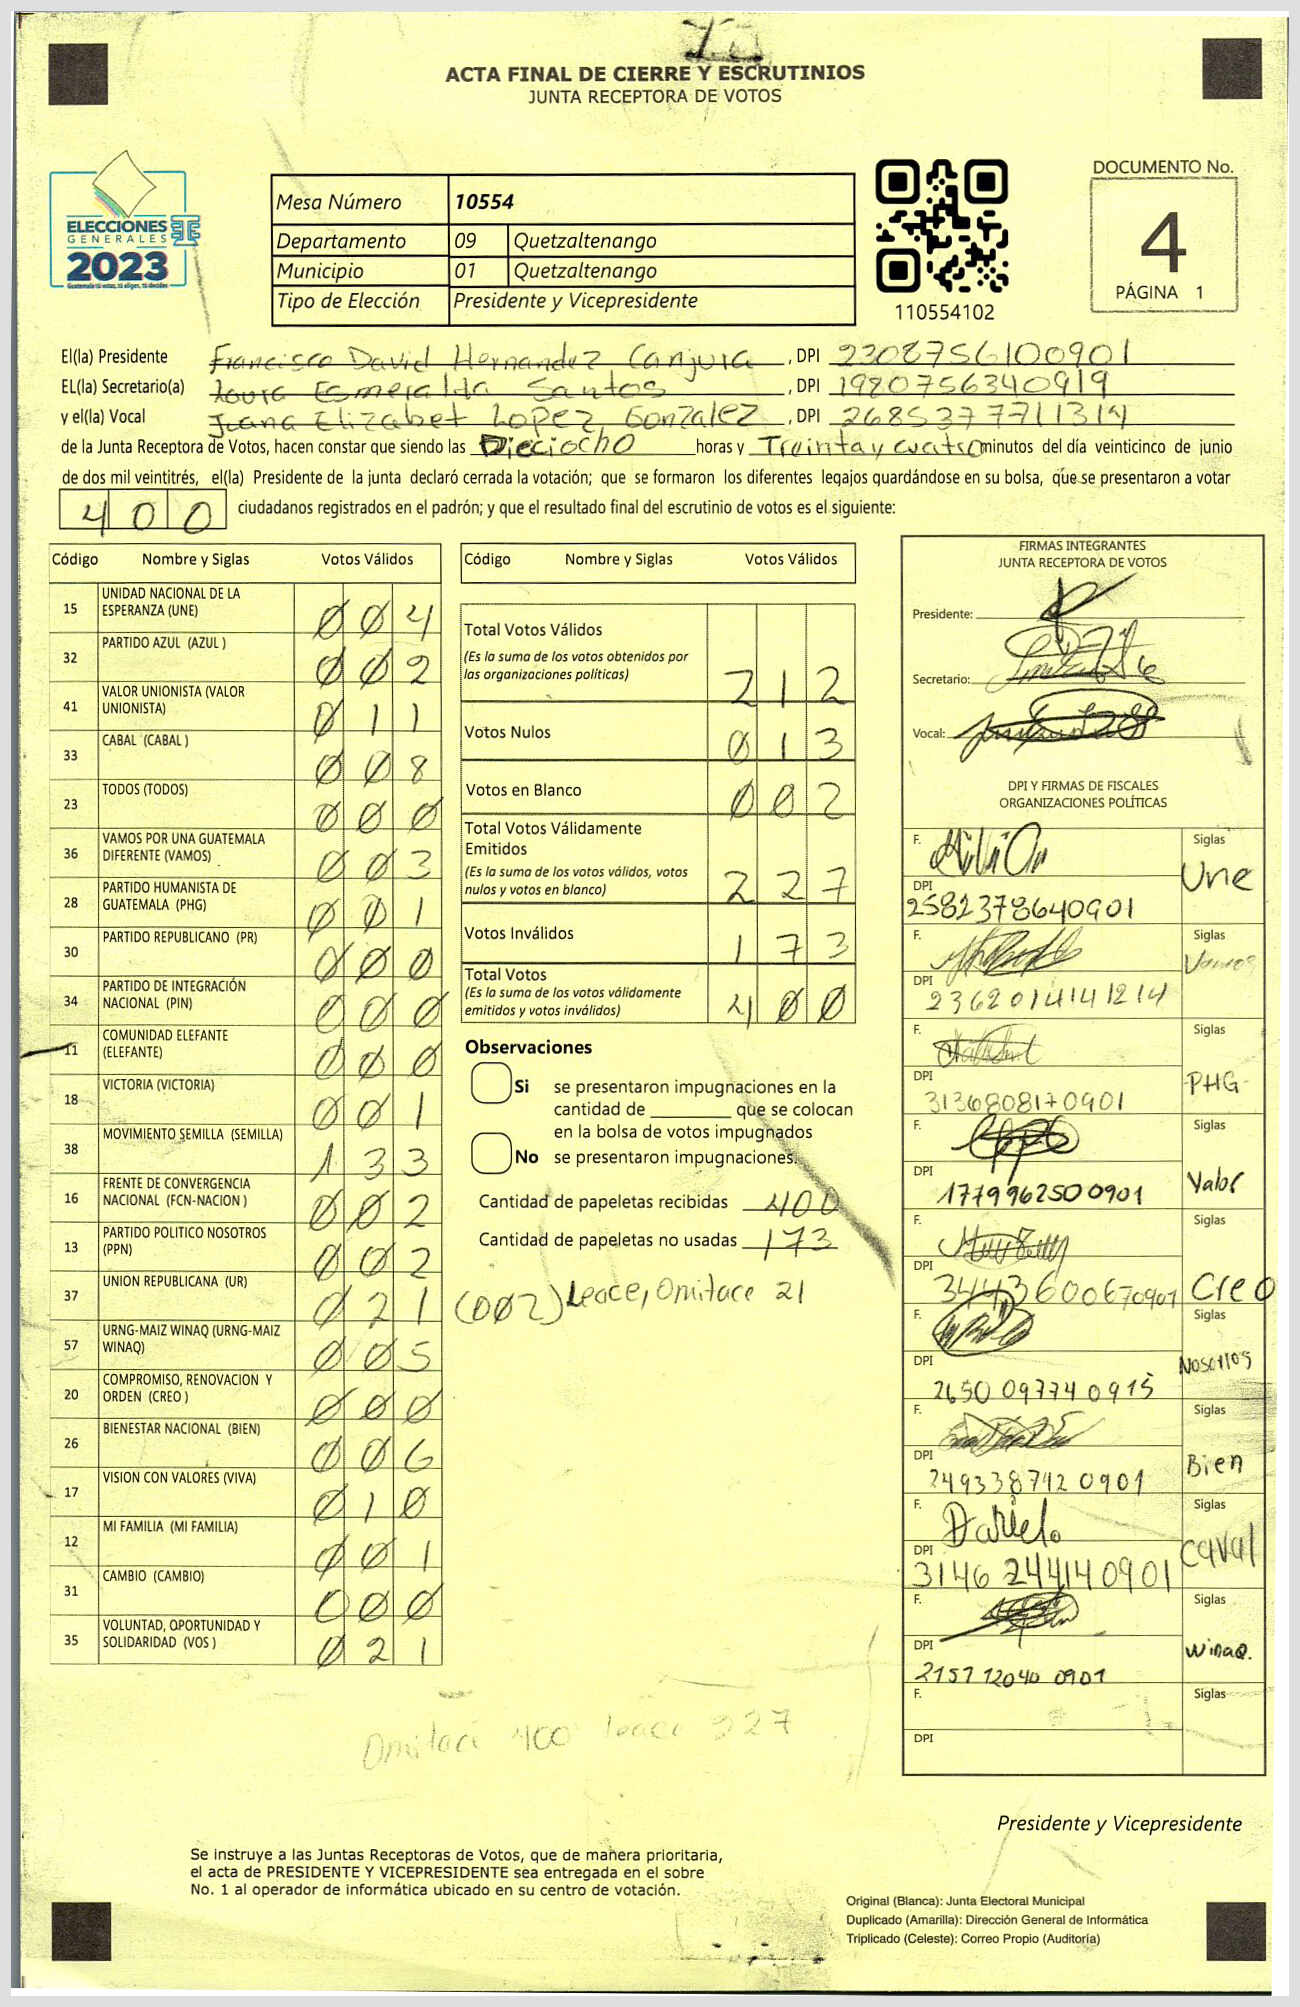 ACTA FINAL DE CIERRE Y ESCRUTINIOS
JUNTA RECEPTORA DE VOTOS
ELECCIONES
GENERALES
2023
Guatemala tú votas, tú eliges, tú decides
Mesa Número 10554
Departamento 09 Quetzaltenango
Municipio 01 Quetzaltenango
Tipo de Elección Presidente y Vicepresidente
110554102
DOCUMENTO No.
4
PÁGINA 1
El(la) Presidente Francisco David Hernandez Canjura, DPI 2308756100901
EL(la) Secretario(a) Laura Esmeralda Santos, DPI 1980756340919
y el(la) Vocal Juana Elizabet Lopez Gonzalez, DPI 2685377711314
de la Junta Receptora de Votos, hacen constar que siendo las Dieciocho horas y Treinta y cuatro minutos del día veinticinco de junio
de dos mil veintitrés, el(la) Presidente de la junta declaró cerrada la votación; que se formaron los diferentes legajos guardándose en su bolsa, que se presentaron a votar
400 ciudadanos registrados en el padrón; y que el resultado final del escrutinio de votos es el siguiente:
Código Nombre y Siglas Votos Válidos
15 UNIDAD NACIONAL DE LA ESPERANZA (UNE) 004
32 PARTIDO AZUL (AZUL ) 002
41 VALOR UNIONISTA (VALOR UNIONISTA) 011
33 CABAL (CABAL ) 008
23 TODOS (TODOS) 000
36 VAMOS POR UNA GUATEMALA DIFERENTE (VAMOS) 003
28 PARTIDO HUMANISTA DE GUATEMALA (PHG) 001
30 PARTIDO REPUBLICANO (PR) 000
34 PARTIDO DE INTEGRACIÓN NACIONAL (PIN) 000
11 COMUNIDAD ELEFANTE (ELEFANTE) 000
18 VICTORIA (VICTORIA) 001
38 MOVIMIENTO SEMILLA (SEMILLA) 133
16 FRENTE DE CONVERGENCIA NACIONAL (FCN-NACION ) 002
13 PARTIDO POLITICO NOSOTROS (PPN) 002
37 UNION REPUBLICANA (UR) 021 (002) Leace, Omitace 21
57 URNG-MAIZ WINAQ (URNG-MAIZ WINAQ) 005
20 COMPROMISO, RENOVACION Y ORDEN (CREO ) 000
26 BIENESTAR NACIONAL (BIEN) 006
17 VISION CON VALORES (VIVA) 010
12 MI FAMILIA (MI FAMILIA) 001
31 CAMBIO (CAMBIO) 000
35 VOLUNTAD, OPORTUNIDAD Y SOLIDARIDAD (VOS ) 021
Código Nombre y Siglas Votos Válidos
Total Votos Válidos 212
(Es la suma de los votos obtenidos por
las organizaciones políticas)
Votos Nulos 013
Votos en Blanco 002
Total Votos Válidamente
Emitidos 227
(Es la suma de los votos válidos, votos
nulos y votos en blanco)
Votos Inválidos 173
Total Votos 400
(Es la suma de los votos válidamente
emitidos y votos inválidos)
Observaciones
Si se presentaron impugnaciones en la
cantidad de ________ que se colocan
en la bolsa de votos impugnados
No se presentaron impugnaciones.
Cantidad de papeletas recibidas 400
Cantidad de papeletas no usadas 173
FIRMAS INTEGRANTES
JUNTA RECEPTORA DE VOTOS
Presidente:
Secretario:
Vocal:
DPI Y FIRMAS DE FISCALES
ORGANIZACIONES POLÍTICAS
F. Siglas Une
DPI 2582378640901
F. Siglas Vamos
DPI 2362014141214
F. Siglas PHG
DPI 3136808170901
F. Siglas Valor
DPI 1779962500901
F. Siglas Creo
DPI 3443600670901
F. Siglas Nosotros
DPI 2650097740915
F. Siglas Bien
DPI 2493387420901
F. Danilo Siglas Caval
DPI 3146244140901
F. Siglas Winaq.
DPI 2157120400901
F. Siglas
DPI
Omitace 400 leace 227
Presidente y Vicepresidente
Se instruye a las Juntas Receptoras de Votos, que de manera prioritaria,
el acta de PRESIDENTE Y VICEPRESIDENTE sea entregada en el sobre
No. 1 al operador de informática ubicado en su centro de votación.
Original (Blanca): Junta Electoral Municipal
Duplicado (Amarilla): Dirección General de Informática
Triplicado (Celeste): Correo Propio (Auditoría)